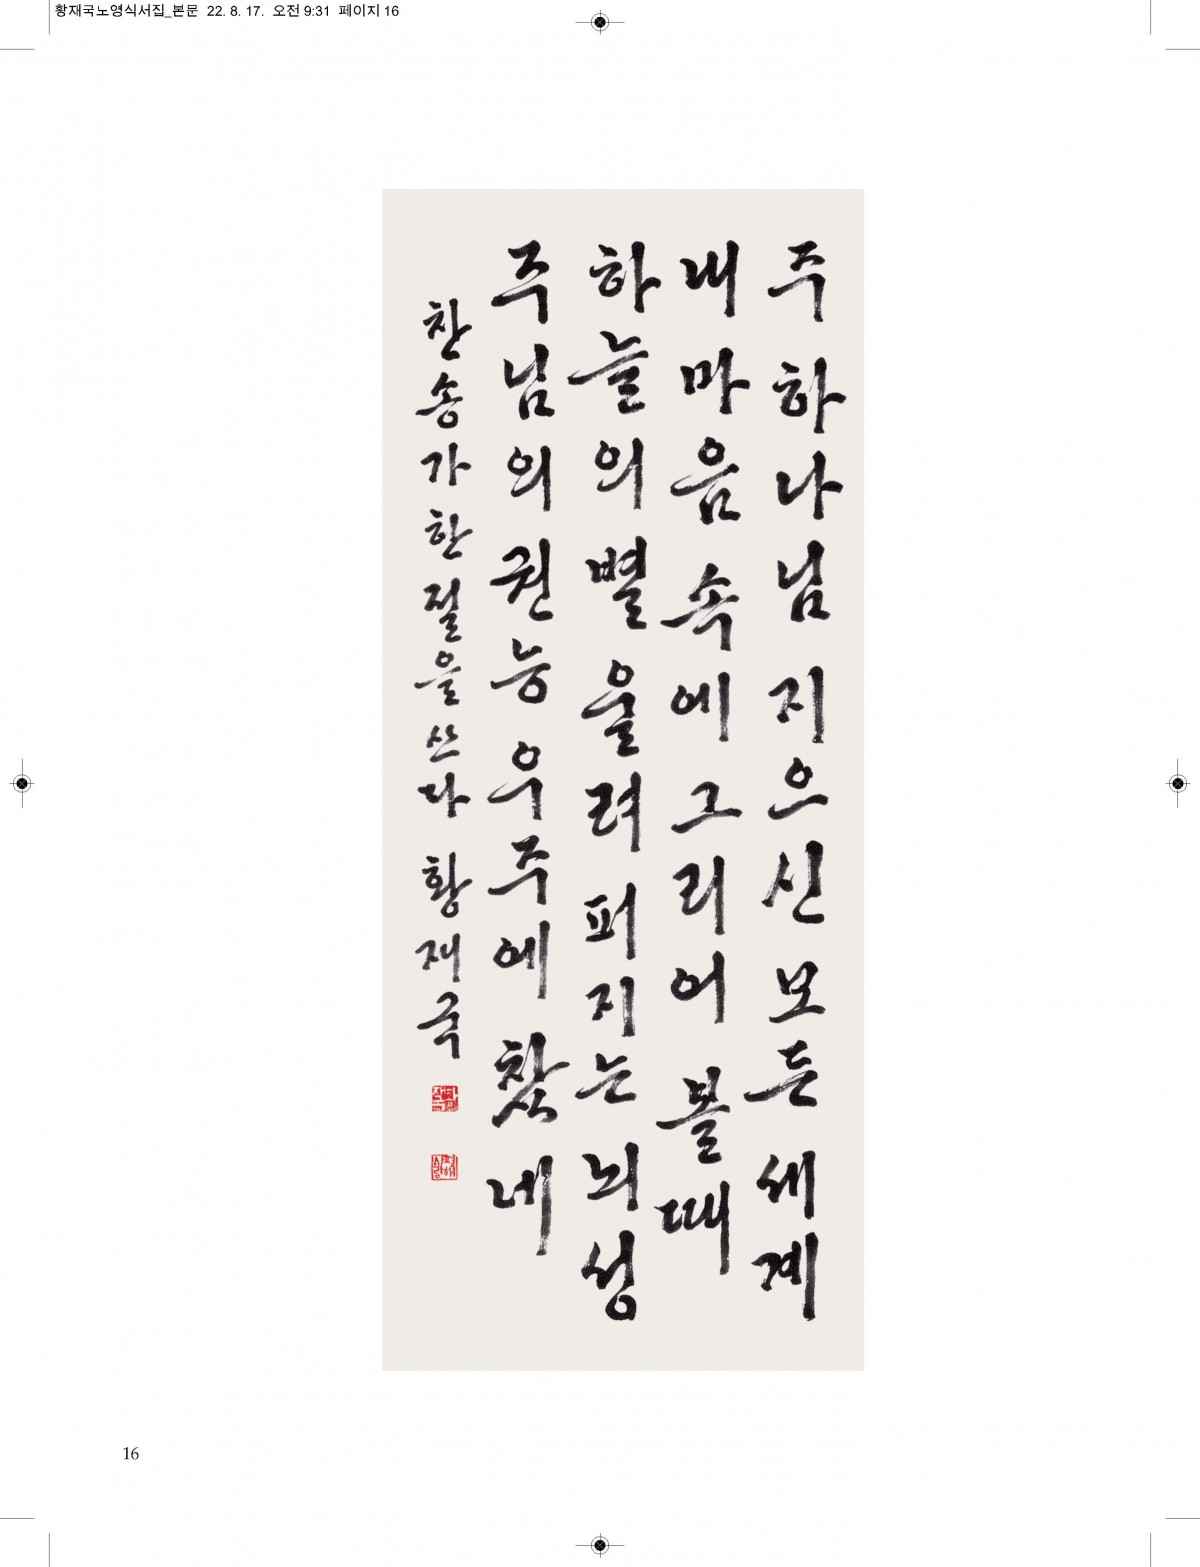 황재국노영식서집_본문 22. 8. 17. 오전 9:31 페이지 16
주하나님 지으신 모든 세계
내 마음 속에 그리어 볼 때
하늘의 별 울려 퍼지는 뇌성
주님의 권능 우주에 찼네
찬송가 한 절을 쓰다 황재국
16